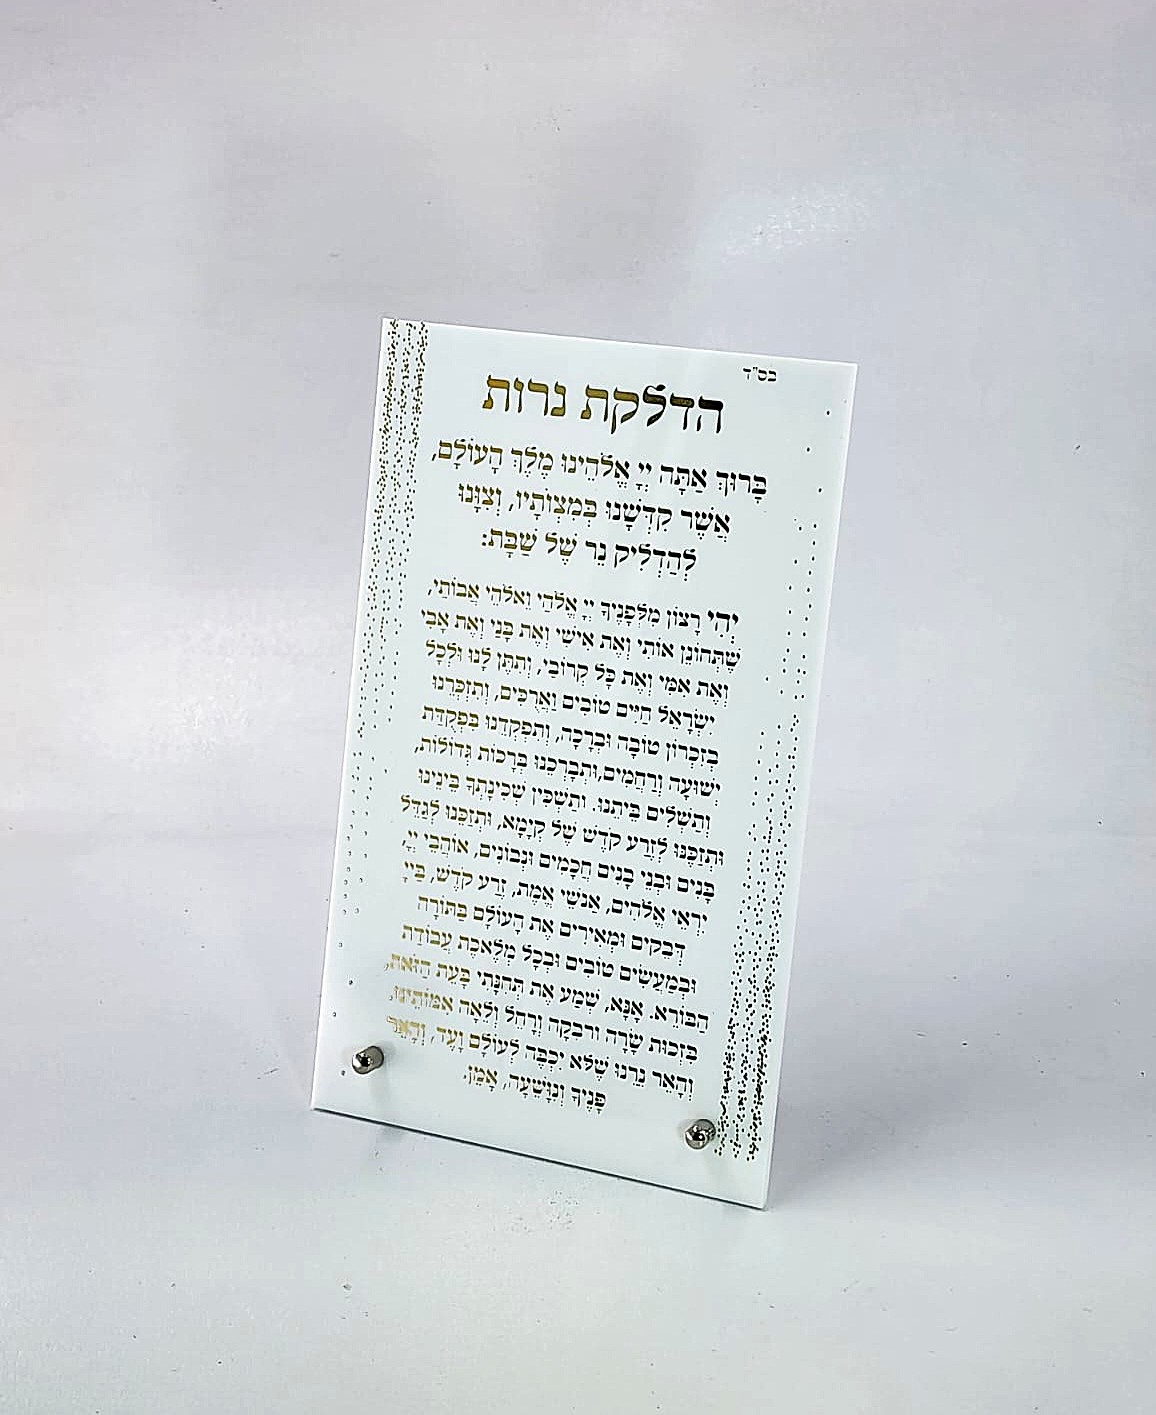 בס"ד
הדלקת נרות
בָּרוּךְ אַתָּה יְיָ אֱלֹהֵינוּ מֶלֶךְ הָעוֹלָם,
אֲשֶׁר קִדְּשָׁנוּ בְּמִצְוֹתָיו, וְצִוָּנוּ
לְהַדְלִיק נֵר שֶׁל שַׁבָּת:
יְהִי רָצוֹן מִלְּפָנֶיךָ יְיָ אֱלֹהַי וֵאלֹהֵי אֲבוֹתַי,
שֶׁתְּחוֹנֵן אוֹתִי וְאֶת אִישִׁי וְאֶת בָּנַי וְאֶת אָבִי
וְאֶת אִמִּי וְאֶת כָּל קְרוֹבַי, וְתִתֵּן לָנוּ וּלְכָל
יִשְׂרָאֵל חַיִּים טוֹבִים וַאֲרֻכִּים, וְתִזְכְּרֵנוּ
בְּזִכְרוֹן טוֹבָה וּבְרָכָה, וְתִפְקְדֵנוּ בִּפְקֻדַּת
יְשׁוּעָה וְרַחֲמִים,וּתְבָרְכֵנוּ בְּרָכוֹת גְּדוֹלוֹת,
וְתַשְׁלִים בֵּיתֵנוּ. וְתַשְׁכִּין שְׁכִינָתְךָ בֵּינֵינוּ
וּתְזַכֵּנוּ לְזֶרַע קֹדֶשׁ שֶׁל קְיָמָא, וּתְזַכֵּנוּ לְגַדֵּל
בָּנִים וּבְנֵי בָנִים חֲכָמִים וּנְבוֹנִים, אוֹהֲבֵי יְיָ,
יִרְאֵי אֱלֹהִים, אַנְשֵׁי אֱמֶת, זֶרַע קֹדֶשׁ, בַּיְיָ
דְּבֵקִים וּמְאִירִים אֶת הָעוֹלָם בַּתּוֹרָה
וּבְמַעֲשִׂים טוֹבִים וּבְכָל מְלֶאכֶת עֲבוֹדַת
הַבּוֹרֵא. אָנָּא, שְׁמַע אֶת תְּחִנָּתִי בָּעֵת הַזֹּאת,
בִּזְכוּת שָׂרָה וְרִבְקָה וְרָחֵל וְלֵאָה אִמּוֹתֵינוּ,
וְהָאֵר נֵרֵנוּ שֶׁלֹּא יִכְבֶּה לְעוֹלָם וָעֶד, וְהָאֵר
פָּנֶיךָ וְנִוָּשֵׁעָה, אָמֵן.